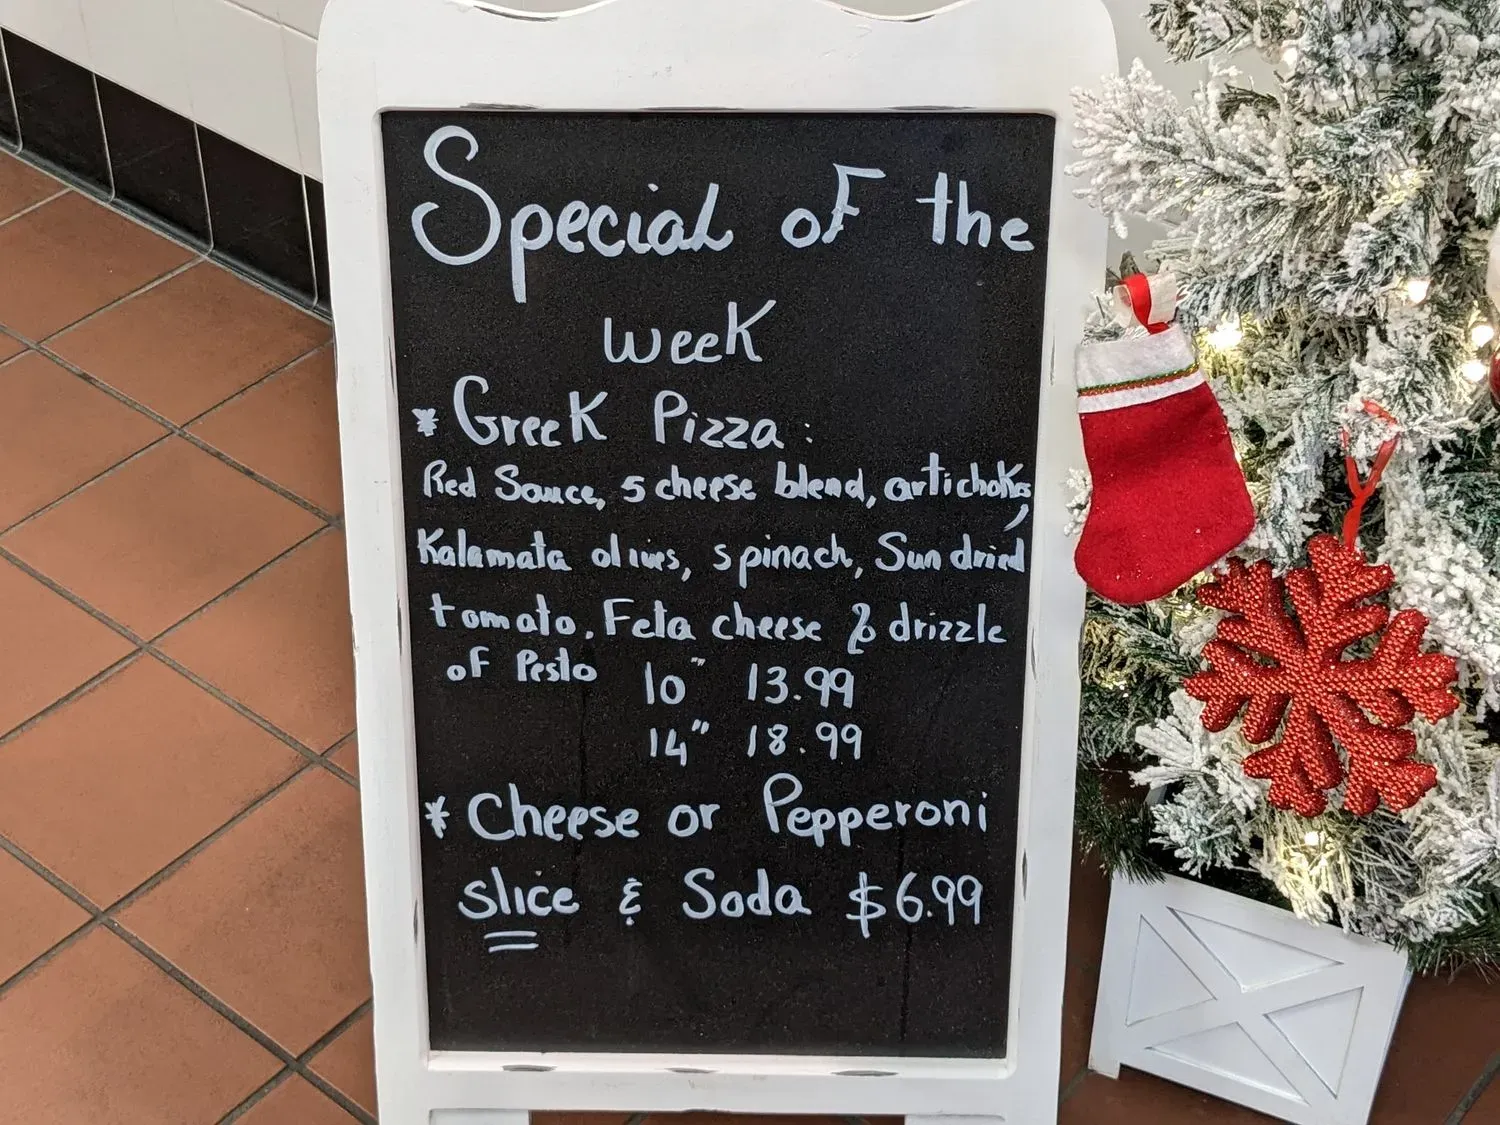 Special of the
week
* Greek Pizza:
Red Sauce, 5 cheese blend, artichokes,
Kalamata olives, spinach, Sun dried
tomato, Feta cheese & drizzle
of Pesto 10" 13.99
14" 18.99
* Cheese or Pepperoni
slice & Soda $6.99